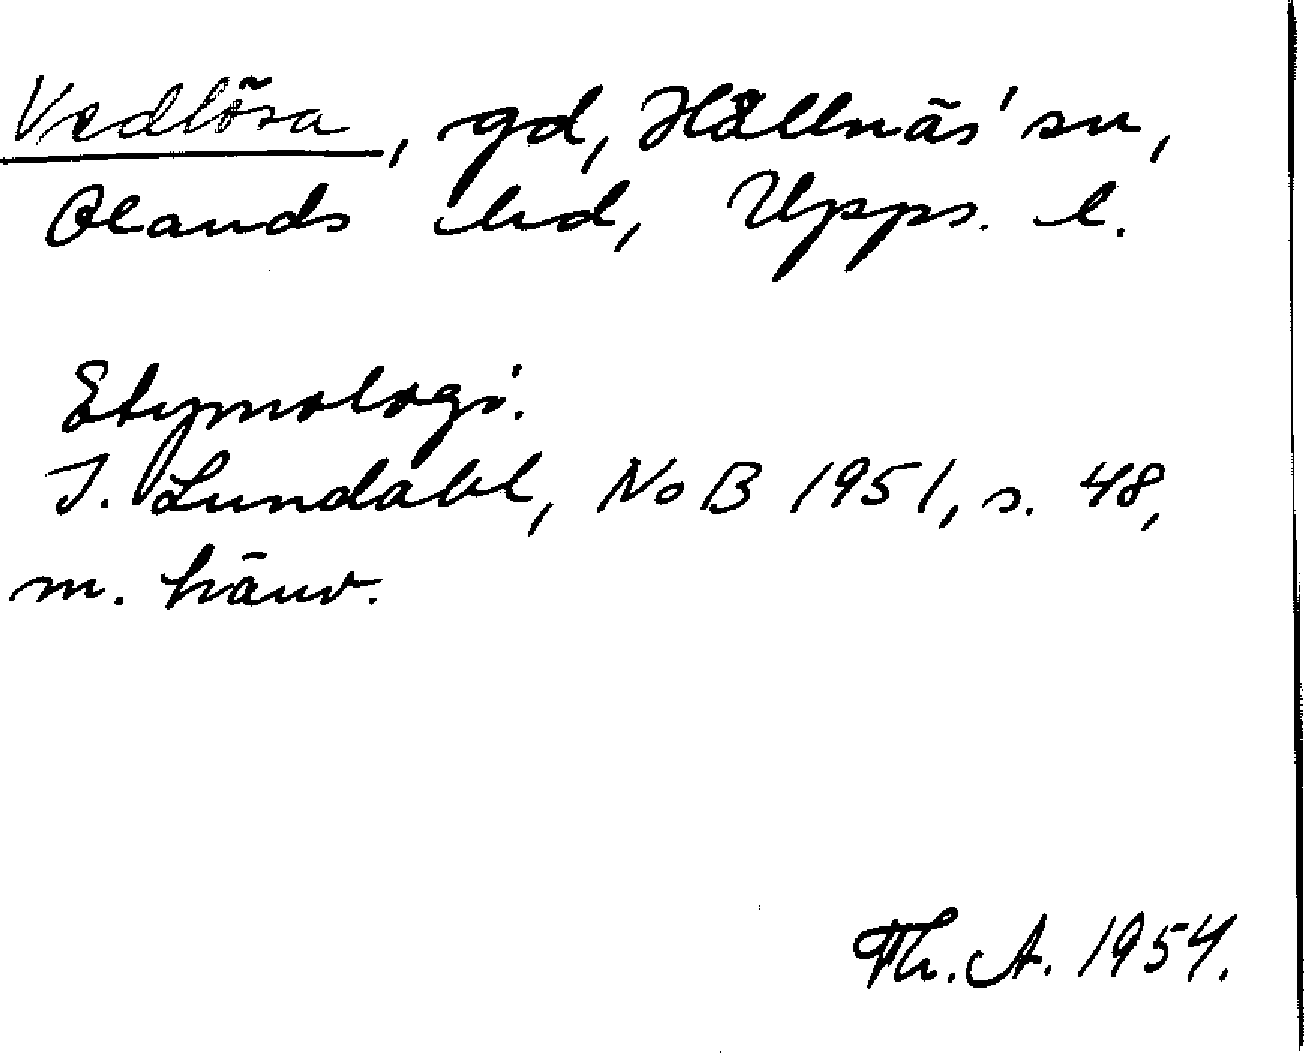 Vedlösa, gd, Hållnäs sn,
Olands hd, Upps. l.
Etymologi.
I. Lundahl, NoB 1951, s. 48,
m. hänv.
Th. A. 1954.